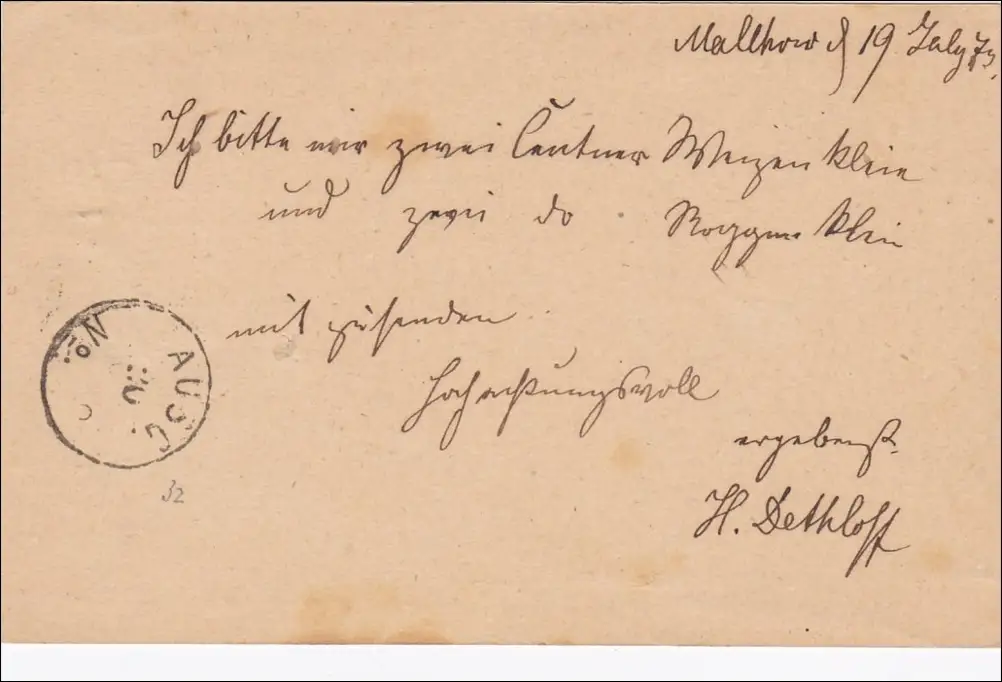 Mallkow d 19 July 73.
Ich bitte mir zwei Centner Weizenkleie
und zwei do Roggenkleie
mit zusenden
Hochachtungsvoll
ergebenst.
H. Dethloff
AUSG.
No
32